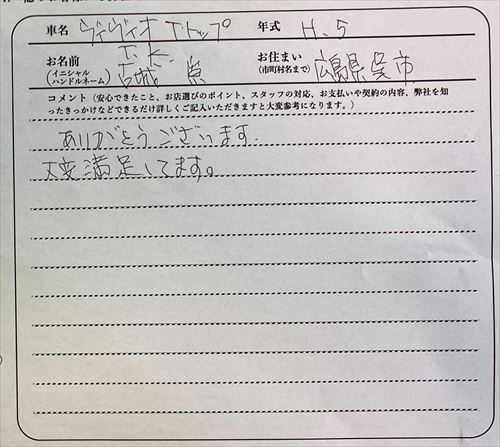 車名 ヴィヴィオ Tトップ 年式 H.5
T.K.
お名前 宮城 お住まい 広島県呉市
(イニシャル (市町村名まで)
ハンドルネーム)
コメント（安心できたこと、お店選びのポイント、スタッフの対応、お支払いや契約の内容、弊社を知
ったきっかけなどできるだけ詳しくご記入いただきますと大変参考になります。）
ありがとうございます.
大変満足してます。